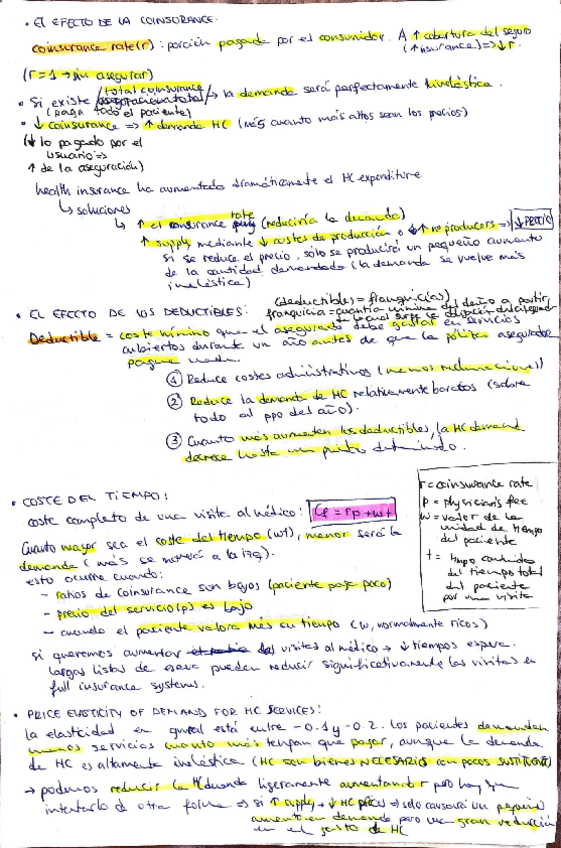 • EL EFECTO DE LA COINSURANCE.
coinsurance rate (r): porción pagada por el consumidor. A ↑ cobertura del seguro
(↑ insurance) => ↓r.
(r=1 → sin asegurar)
/total coinsurance
• Si existe → la demanda será perfectamente inelástica.
(paga todo el paciente)
• ↓ coinsurance => ↑ demanda HC (más cuanto más altos sean los precios)
(↓ lo pagado por el
usuario =>
↑ de la aseguración)
health insurance ha aumentado dramáticamente el HC expenditure
↳ soluciones
↳ ↑ el coinsurance rate (reduciría la demanda)
↑ supply mediante ↓ costes de producción o ↑ nº producers => ↓ PRECIO
si se reduce el precio, sólo se producirá un pequeño aumento
de la cantidad demandada (la demanda se vuelve más
inelástica)
• EL EFECTO DE LOS DEDUCTIBLES: (deductibles = franquicias)
franquicia = cuantía mínima del daño a partir
de la cual surge la obligación del asegurador
Deductible = coste mínimo que el asegurado debe gastar en servicios
cubiertos durante un año antes de que la póliza aseguradora
pague nada.
① Reduce costes administrativos (menos reclamaciones)
② Reduce la demanda de HC relativamente baratos (sobre
todo al ppo del año).
③ Cuanto más aumenten los deductibles, la HC demand
decrece hasta un punto determinado.
• COSTE DEL TIEMPO:
coste completo de una visita al médico: Cf = rp + wt
Cuanto mayor sea el coste del tiempo (wt), menor será la
demanda (más se moverá a la izq).
esto ocurre cuando:
- ratios de coinsurance son bajos (paciente paga poco)
- precio del servicio (p) es bajo
- cuando el paciente valora más su tiempo (w, normalmente ricos)
si queremos aumentar visitas al médico → ↓ tiempos espera.
largas listas de espera pueden reducir significativamente las visitas en
full insurance systems.
r = coinsurance rate
p = physician's fee
w = valor de la
unidad de tiempo
del paciente
t = tiempo
del tiempo total
del paciente
por una visita
• PRICE ELASTICITY OF DEMAND FOR HC SERVICES:
la elasticidad en gneral está entre -0.1 y -0.2. Los pacientes demandan
menos servicios cuanto más tengan que pagar, aunque la demanda
de HC es altamente inelástica (HC son bienes NECESARIOS con pocos SUSTITUTOS)
→ podemos reducir la demanda ligeramente aumentando r pero hay que
intentarlo de otra forma => si ↑ supply → ↓ HC prices => solo causará un pequeño
aumento en demanda pero una gran reducción
en el gasto de HC